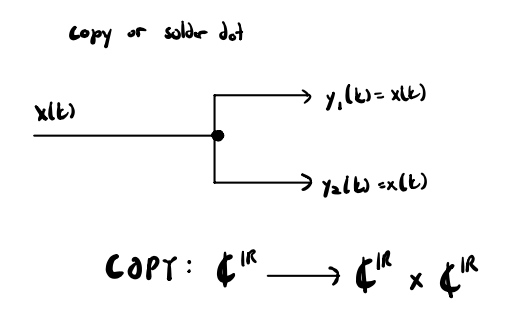 copy or solder dot
x(t)
y₁(t) = x(t)
y₂(t) = x(t)
COPY: ℂ^ℝ ⟶ ℂ^ℝ × ℂ^ℝ